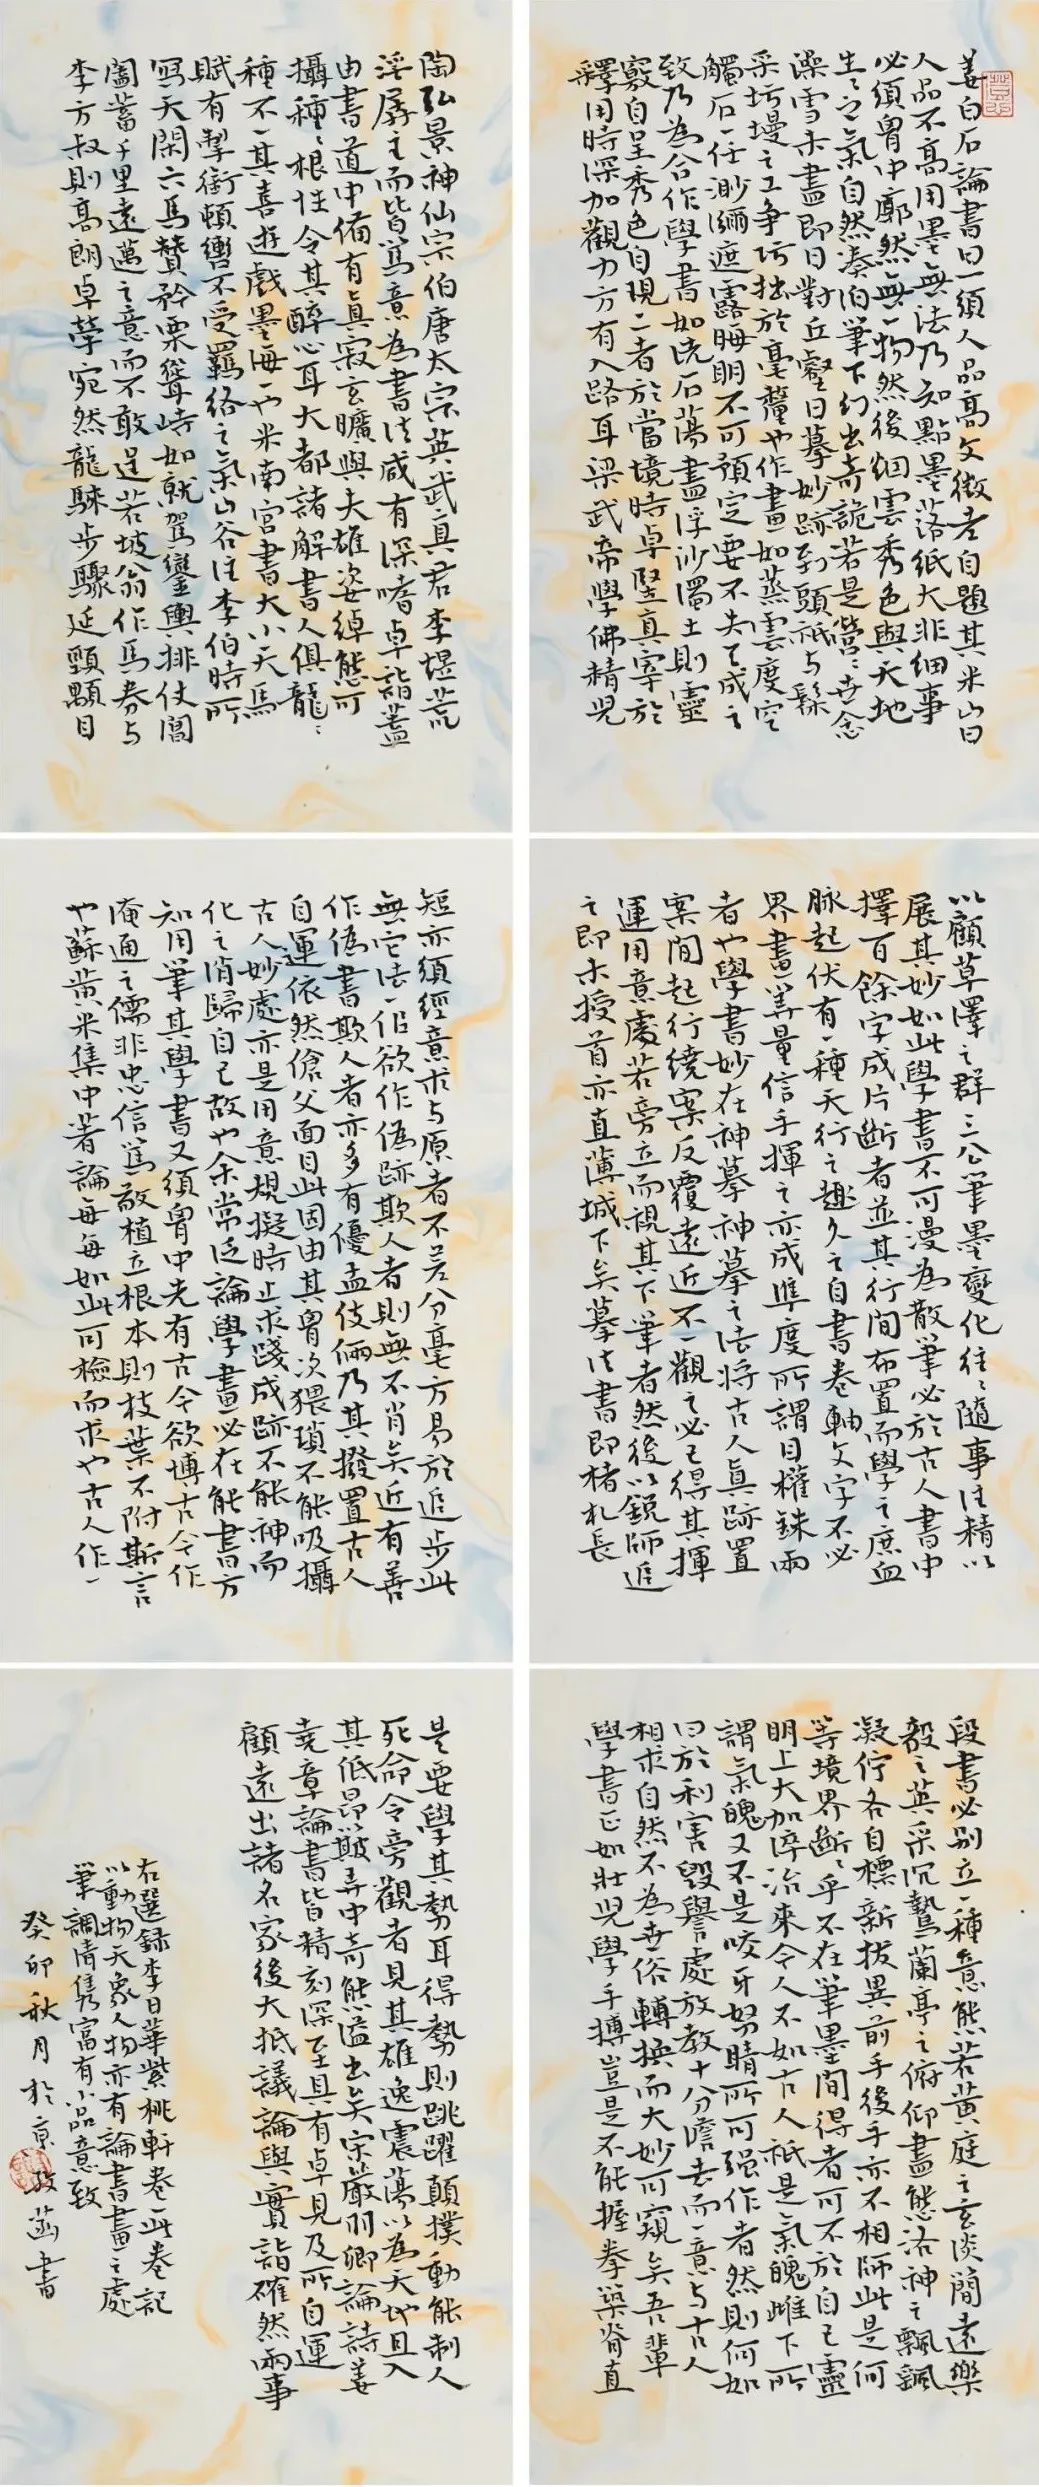 姜白石論書曰一須人品高文徵老自題其米山曰
人品不高用墨無法乃知點墨落紙大非細事
必須胷中廓然無一物然後烟雲秀色與天地
生之氣自然湊泊筆下幻出奇詭若是營營世念
澡雪未盡即日對丘壑日摹妙跡到頭祇与髹
采圬墁之工争巧拙於毫釐也作畫如蒸雲度空
觸石一任渺瀰遮露晦明不可預定要不失天成之
致乃為合作學書如洗石蕩盡浮沙濁土則靈
竅自呈秀色自現二者於當境時卓竪真宰於
釋用時深加觀力方有入路耳梁武帝學佛精況
陶弘景神仙宗伯唐太宗英武真君李煜荒
淫孱主而皆篤意為書法咸有深嗜卓詣蓋
由書道中備有真寂玄曠與夫雄姿綽態可
攝種種根性令其醉心耳大都諸解書人俱龍
種不一其喜遊戲墨海一也米南宮書大小天馬
賦有掣銜頓轡不受羈絡之氣山谷注李伯時所
寫天閑六馬贊矜栗聳峙如就駕鑾輿排仗閶
闔蓄千里遠邁之意而不敢逞若坡翁作馬券与
李方叔則高朗卓犖宛然龍騋步驟延頸顒目
以顧草澤之群三公筆墨變化往往隨事注精以
展其妙如此學書不可漫為散筆必於古人書中
擇百餘字成片斷者並其行間布置而學之庶血
脉起伏有一種天行之趣久之自書卷軸文字不必
界畫筭量信手揮之亦成準度所謂目權銖兩
者也學書妙在神摹神摹之法將古人真跡置
案間起行繞案反覆遠近不一觀之必已得其揮
運用意處若旁立而視其下筆者然後以銳師追
之即未授首亦直薄城下矣摹法書即楮札長
短亦須經意求与原者不差分毫方易於追步此
無它法一但欲作偽跡欺人者則無不肖矣近有善
作偽書欺人者亦多有優孟伎倆乃其撥置古人
自運依然傖父面目此因由其胷次猥瑣不能吸攝
古人妙處亦是用意規擬時止求踐成跡不能神而
化之消歸自己故也余常泛論學畫必在能書方
知用筆其學書又須胷中先有古今欲博古今作
淹通之儒非忠信篤敬植立根本則枝葉不附斯言
也蘇黃米集中著論每每如此可檢而求也古人作一
段書必別立一種意態若黃庭之玄淡簡遠樂
毅之英采沉鷙蘭亭之俯仰盡態洛神之飄飄
凝佇各自標新拔異前手後手亦不相師此是何
等境界斷斷乎不在筆墨間得者可不於自己靈
明上大加淬冶來令人不如古人祇是氣魄雌下所
謂氣魄又不是咬牙努睛所可强作者然則何如
曰於利害毀譽處放教十分澹去而一意与古人
相求自然不為世俗轉換而大妙可窺矣吾輩
學書正如壯児學手搏豈是不能握拳築脊直
是要學其勢耳得勢則跳躍顛撲動能制人
死命令旁觀者見其雄逸震蕩以為天地且入
其低昂簸弄中奇態溢出矣宋嚴羽卿論詩姜
堯章論書皆精刻深至具有卓見及所自運
顧遠出諸名家後大抵議論與實詣確然兩事
右選録李日華紫桃軒卷一此卷記
以動物天象人物亦有論書畫之處
筆調清雋富有小品意致
癸卯秋月於京 政菡書